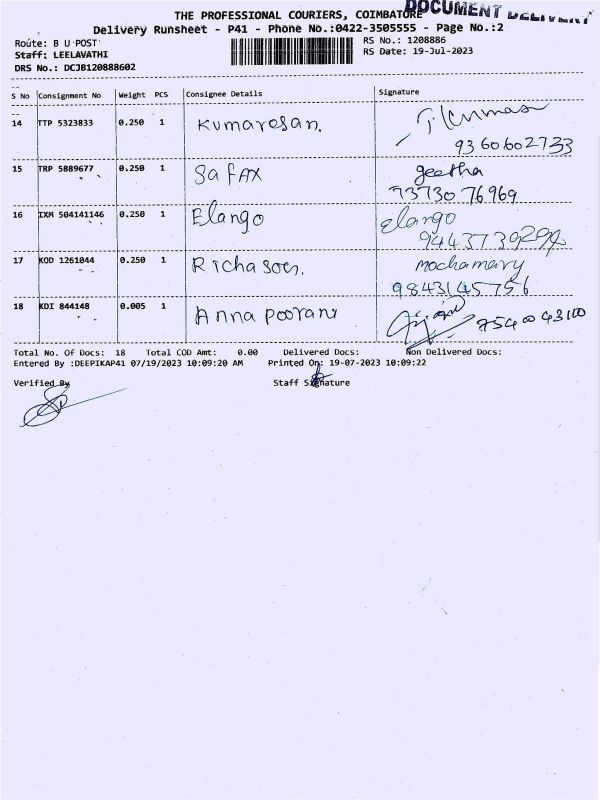 DOCUMENT DELIVERY
THE PROFESSIONAL COURIERS, COIMBATORE
Delivery Runsheet - P41 - Phone No.:0422-3505555 - Page No.:2
Route: B U POST
RS No.: 1208886
Staff: LEELAVATHI
RS Date: 19-Jul-2023
DRS No.: DCJB120888602
S No Consignment No Weight PCS Consignee Details Signature
14 TTP 5323833 0.250 1 Kumaresan. T. Kumar
9360602733
15 TRP 5889677 0.250 1 Safax geetha
73730 76969
16 IXM 504141146 0.250 1 Elango Elango
17 KOD 1261044 0.250 1 Richason
9843145756
18 KDI 844148 0.005 1 Anna Poorani 75400 43100
Total No. Of Docs: 18 Total COD Amt: 0.00 Delivered Docs: Non Delivered Docs:
Entered By :DEEPIKAP41 07/19/2023 10:09:20 AM Printed On: 19-07-2023 10:09:22
Verified By Staff Signature